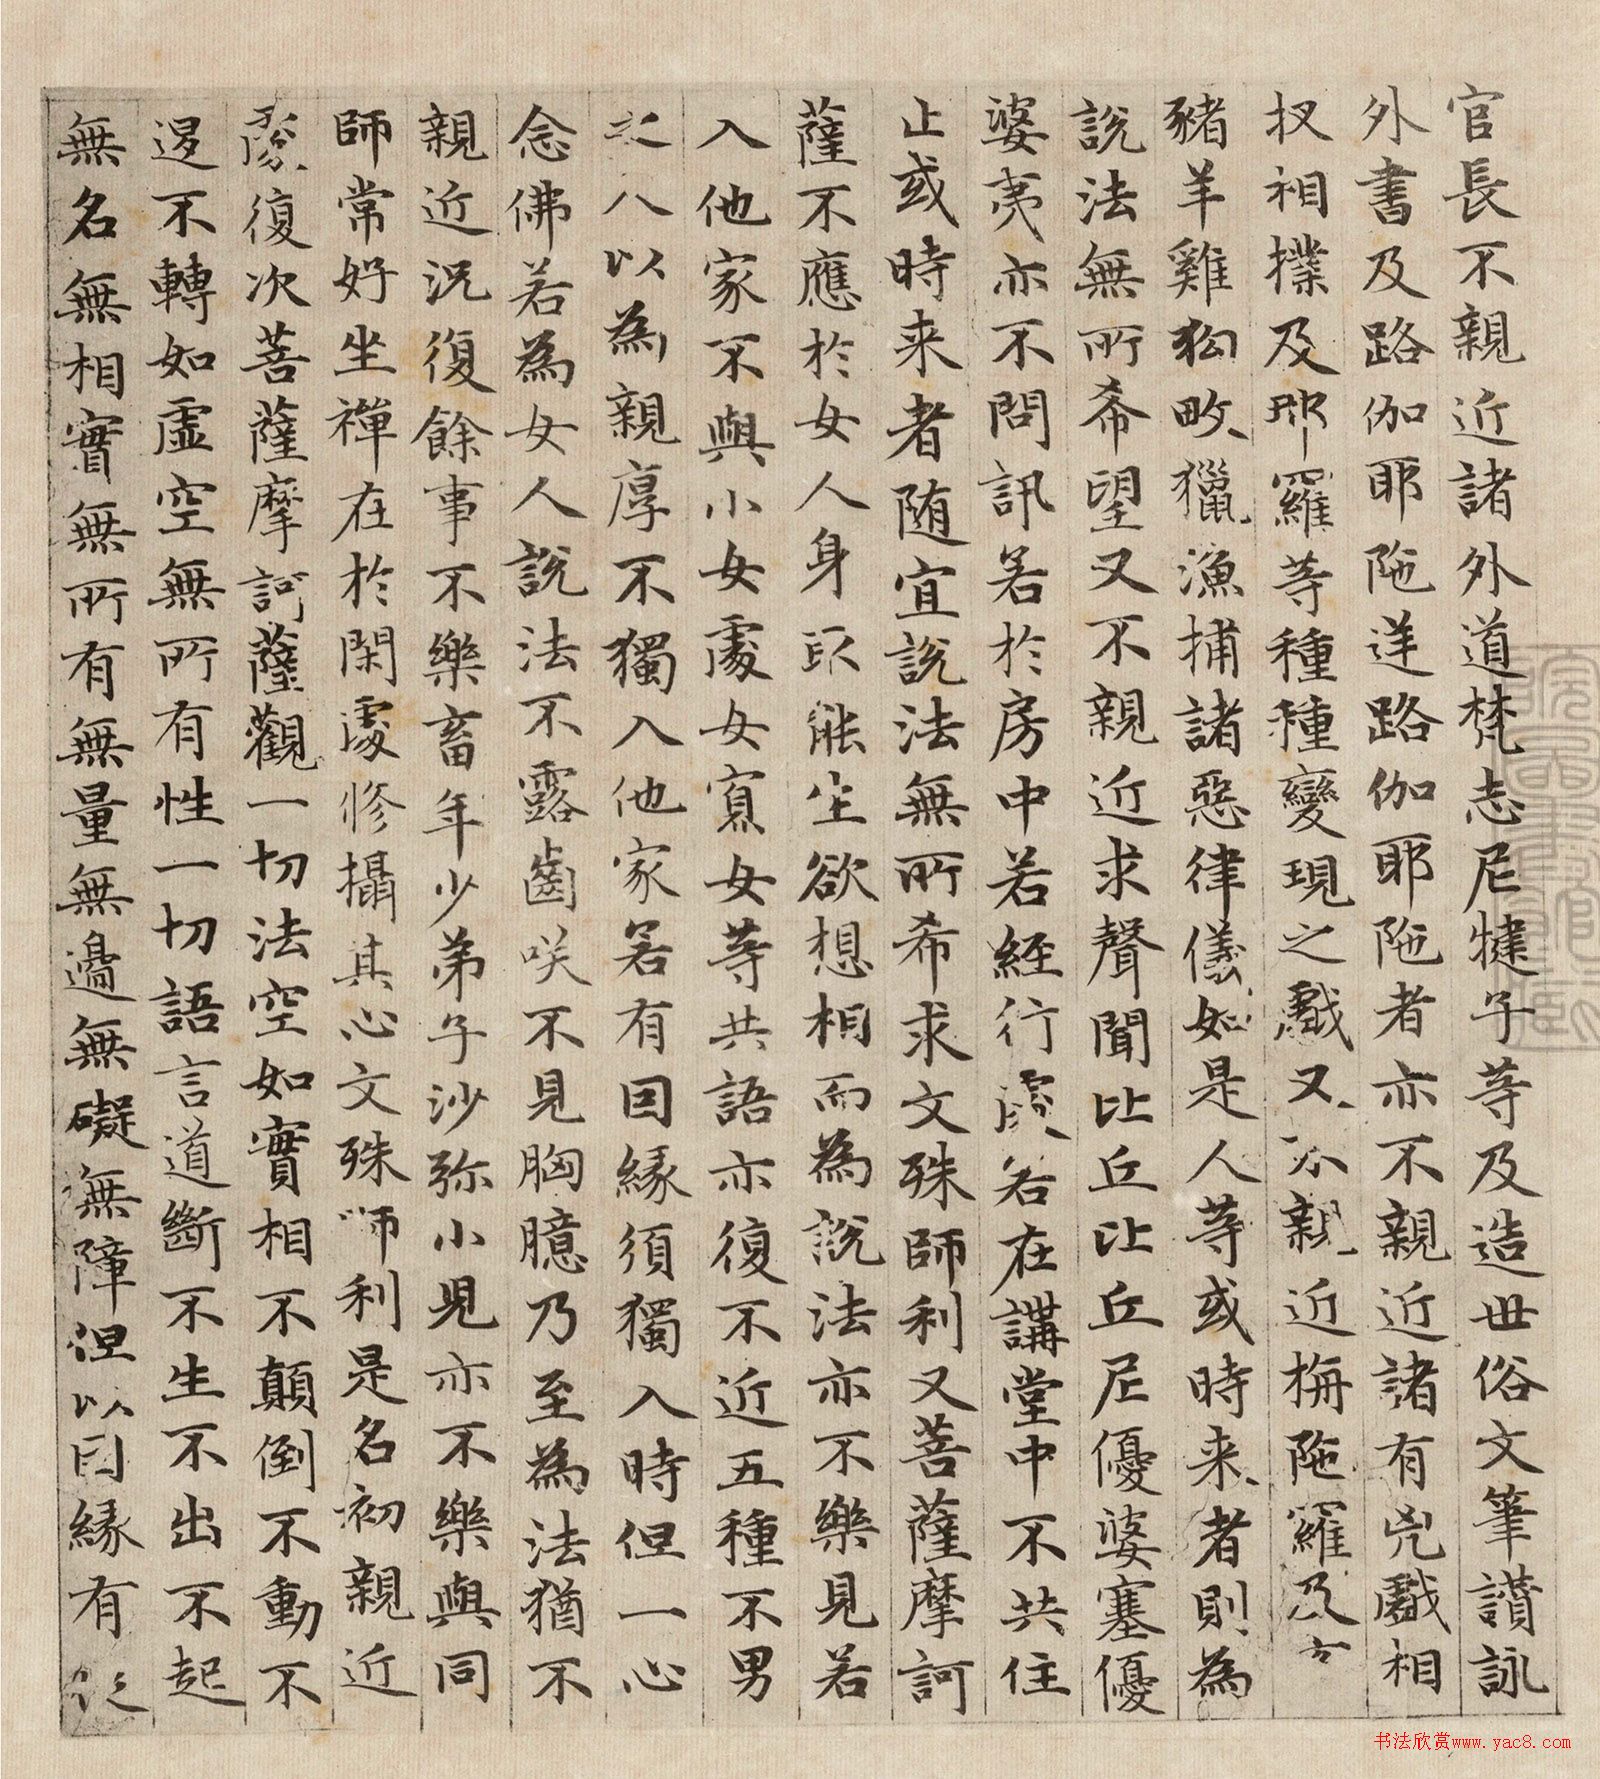 官長不親近諸外道梵志尼犍子等及造世俗文筆讃詠
外書及路伽耶陁逆路伽耶陁者亦不親近諸有兇戲相
扠相撲及那羅等種種變現之戲又不親近栴陁羅及畜
豬羊雞狗畋獵漁捕諸惡律儀如是人等或時来者則為
說法無所希望又不親近求聲聞比丘比丘尼優婆塞優
婆夷亦不問訊若於房中若經行處若在講堂中不共住
止或時来者随宜說法無所希求文殊師利又菩薩摩訶
薩不應於女人身取能生欲想相而為說法亦不樂見若
入他家不與小女處女寡女等共語亦復不近五種不男
之人以為親厚不獨入他家若有因緣須獨入時但一心
念佛若為女人說法不露齒咲不見胸臆乃至為法猶不
親近況復餘事不樂畜年少弟子沙弥小兒亦不樂與同
師常好坐禪在於閑處修攝其心文殊師利是名初親近
處復次菩薩摩訶薩觀一切法空如實相不顛倒不動不
退不轉如虛空無所有性一切語言道斷不生不出不起
無名無相實無所有無量無邊無礙無障但以因緣有從
书法欣赏www.yac8.com